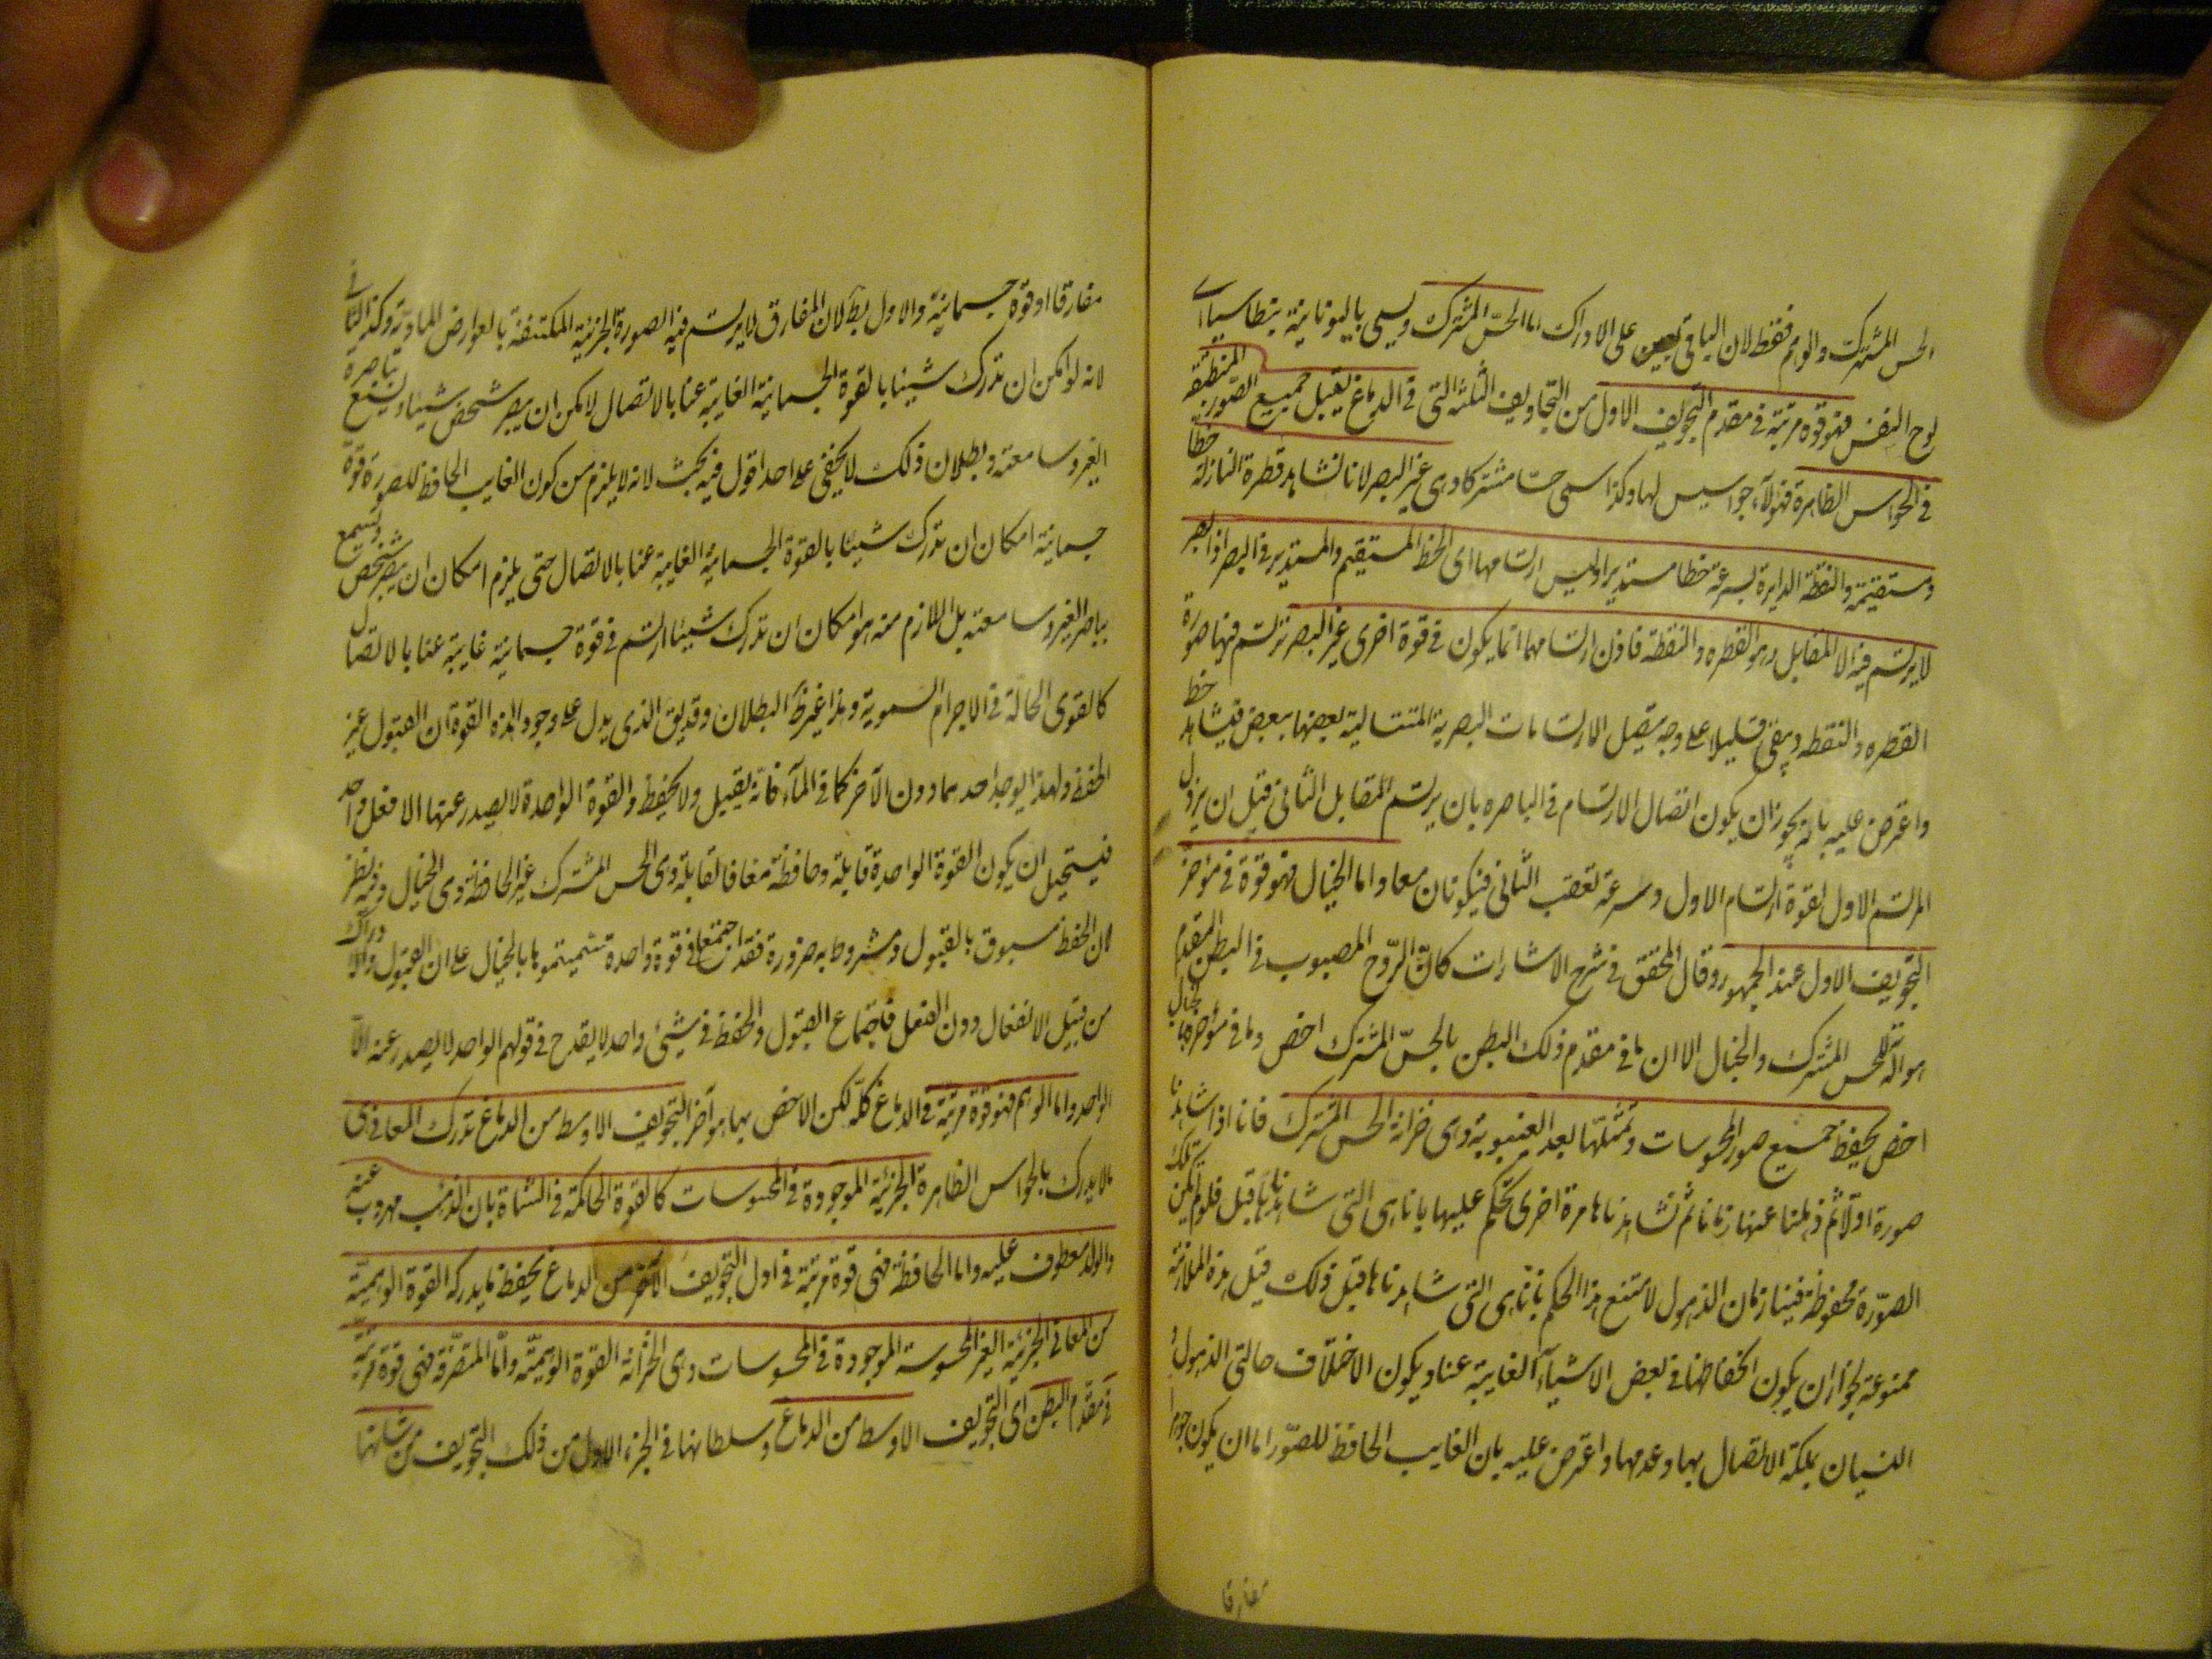 الحس المشترك والوهم فقط لان الباقى تعين على الادراك اما الحس المشترك ويسمى باليونانية بنطاسيا اى
لوح النفس فهو قوة مرتبة فى مقدم التجويف الاول من التجاويف الثلثة التى فى الدماغ يقبل جميع الصور المنطبعة
فى الحواس الظاهرة فهؤلاء جواسيس لها ولذا سمى حسا مشتركا وهى غير البصر لانا نشاهد قطرة النازلة خطا
مستقيمة والنقطة الدايرة بسرعة خطا مستديرا وليس ارتسامهما اى الخط المستقيم والمستدير فى البصر اذ البصر
لا يرتسم فيه الا المقابل وهو القطره والنقطة فاذن ارتسامهما انما يكون فى قوة اخرى غير البصر ترتسم فيها صورة
القطره والنقطه وتبقى قليلا على وجه يتصل الارتسامات البصرية المتتالية بعضها ببعض فيشاهد خط
واعترض عليه بانه يجوز ان يكون اتصال الارتسام فى الباصره بان يرتسم المقابل الثانى قبل ان يزول
المرتسم الاول لقوة ارتسام الاول وسرعة تعقب الثانى فيكونان معا واما الخيال فهو قوة فى مؤخر
التجويف الاول عند الجمهور وقال المحقق فى شرح الاشارات كان الروح المصبوب فى البطن المقدم
هو آلة للحس المشترك والخيال الا ان ما فى مقدم ذلك البطن بالحس المشترك اخص وما فى مؤخره بالخيال
اخص يحفظ جميع صور المحسوسات وتمثلها بعد الغيبوبة وهى خزانة الحس المشترك فانا اذا شاهدنا
صورة اولا ثم ذهلنا عنها زمانا ثم نشاهدها مرة اخرى نحكم عليها بانها هى التى شاهدناها قبل فلو لم يكن تلك
الصورة محفوظة فينا زمان الذهول لامتنع هذا الحكم بانها هى التى شاهدناها قبل ذلك قيل هذه الملازمة
ممنوعة لجواز ان يكون انحفاظها فى بعض الاشياء الغايبة عنا ويكون الاختلاف حالتى الذهول و
النسيان بملكة الاتصال بها وعدمها واعترض عليه بان الغايب الحافظ للصور اما ان يكون جوهرا
مفارقا
مفارقا او قوة جسمانية والاول بط لان المفارق لا يرتسم فيه الصورة الجزئية المكتنفة بالعوارض المادية وكذا الثانى
لانه لو امكن ان تدرك شيئا بالقوة الجسمانية الغايبة عنا بالاتصال لامكن ان يبصر شخص شيئا ويسمع بباصرة
الغير وسامعته وبطلان ذلك لا يخفى على احد اقول فيه بحث لانه لا يلزم من كون الغايب الحافظ للصورة قوة
جسمانية امكان ان تدرك شيئا بالقوة الجسمانية الغايبة عنا بالاتصال حتى يلزم امكان ان يبصر شخص ويسمع
بباصر الغير وسامعته بل اللازم منه هو امكان ان تدرك شيئا ارتسم فى قوة جسمانية غايبة عنا بالاتصال
كالقوى الحالة فى الاجرام السموية وهذا غير ظ البطلان وقد يق الذى يدل على وجود هذه القوة ان القبول غير
الحفظ ولهذا يوجد احدهما دون الآخر كما فى الماء فانه يقبل ولا يحفظ والقوة الواحدة لا يصدر عنها الا فعل واحد
فيستحيل ان يكون القوة الواحدة قابلة وحافظة معا فالقابلة وهى الحس المشترك غير الحافظة وهى الخيال وفيه نظر
لان الحفظ مسبوق بالقبول ومشروط به ضرورة فقد اجتمعا فى قوة واحدة سميتموها بالخيال على ان القبول والادراك
من قبيل الانفعال دون الفعل فاجتماع القبول والحفظ فى شيئ واحد لا يقدح فى قولهم الواحد لا يصدر عنه الا
الواحد واما الوهم فهو قوة مرتبة فى الدماغ كله لكن الاخص بها هو آخر التجويف الاوسط من الدماغ تدرك المعانى
ما لا يدرك بالحواس الظاهرة الجزئية الموجودة فى المحسوسات كالقوة الحاكمة فى الشاة بان الذئب مهروب عنه
والولد معطوف عليه واما الحافظة فهى قوة مرتبة فى اول التجويف الآخر من الدماغ يحفظ ما يدركه القوة الوهمية
من المعانى الجزئية الغير المحسوسة الموجودة فى المحسوسات وهى الخزانة القوة الوهمية واما المتصرفة فهى قوة مرتبة
فى مقدم البطن اى التجويف الاوسط من الدماغ وسلطانها فى الجزء الاول من ذلك التجويف من شانها